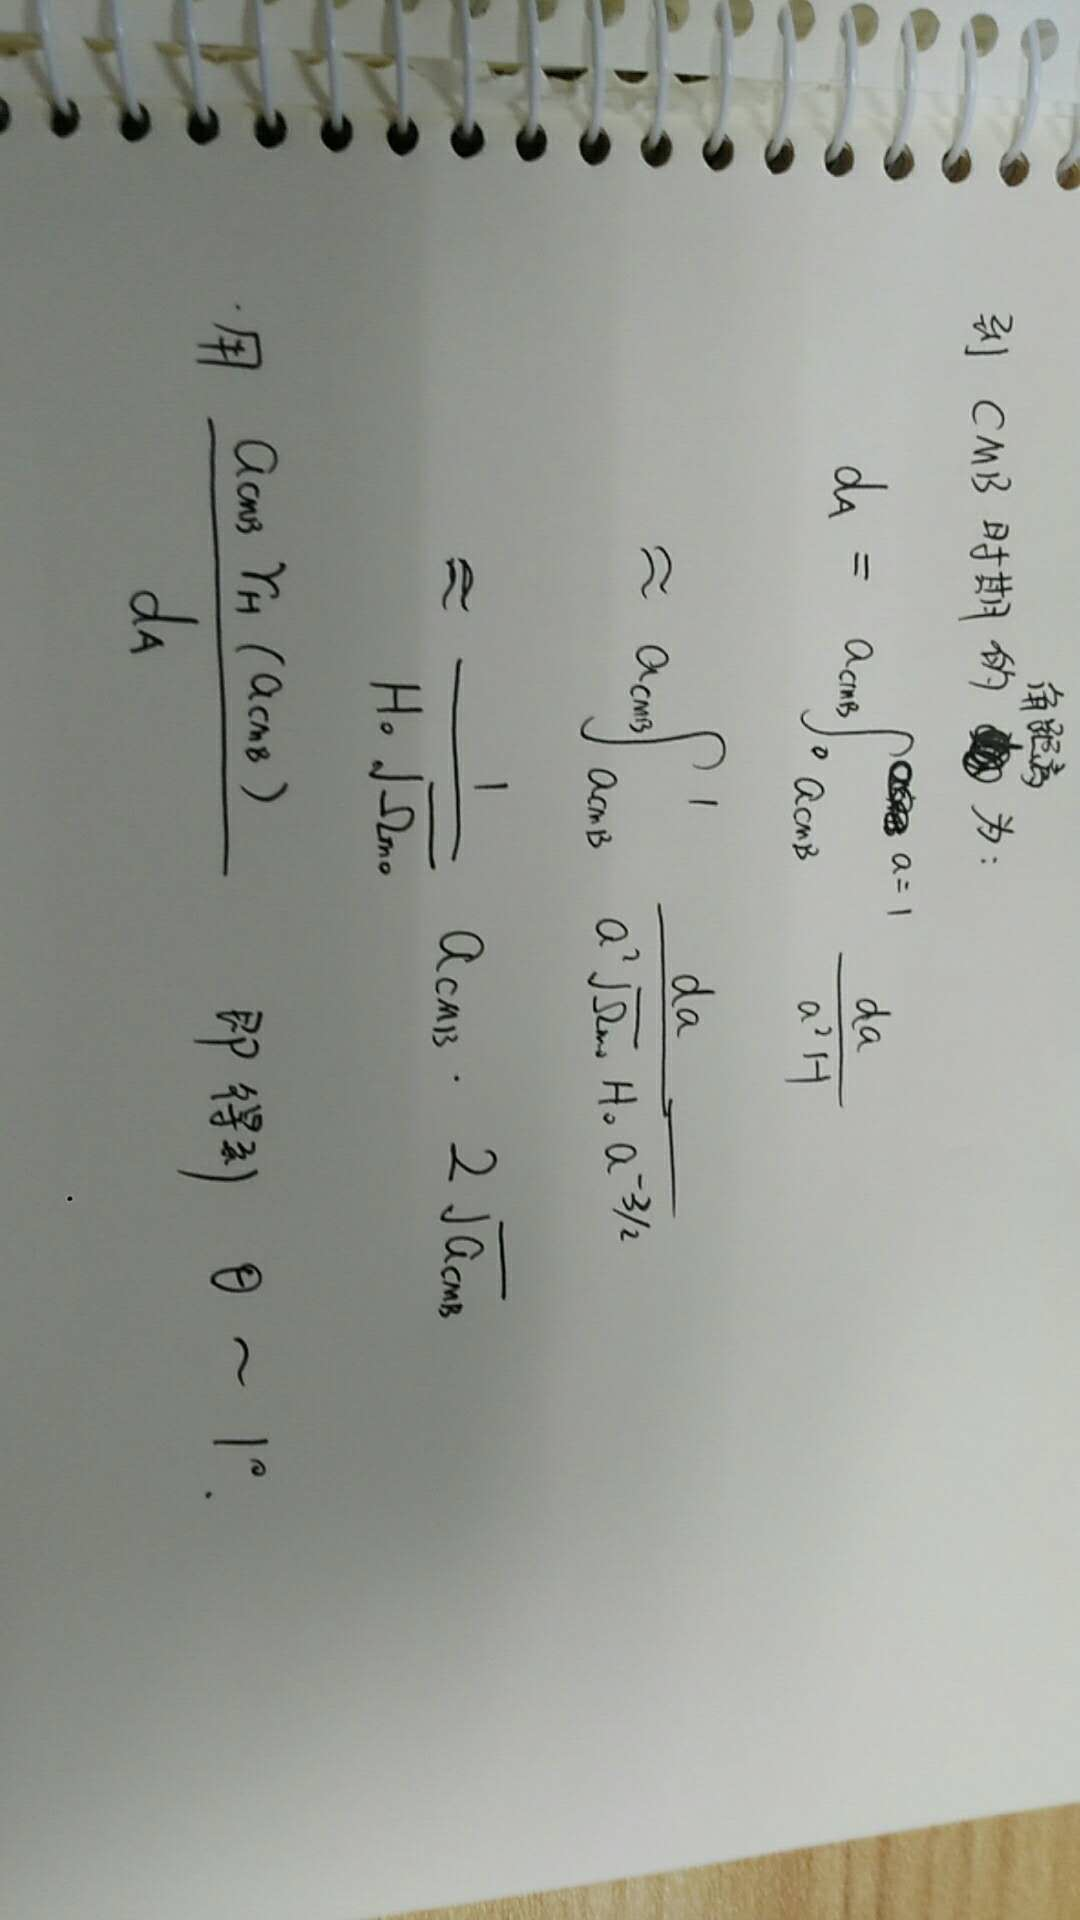 到 CMB 时期的角距离为:
dA = aCMB ∫_{aCMB}^{a=1} da / a²H
≈ aCMB ∫_{aCMB}^{1} da / a²√Ωm0 H0 a^{-3/2}
≈ 1 / H0√Ωm0 aCMB · 2√aCMB
·用 aCMB rH(aCMB) / dA 即得到 θ ~ 1°.